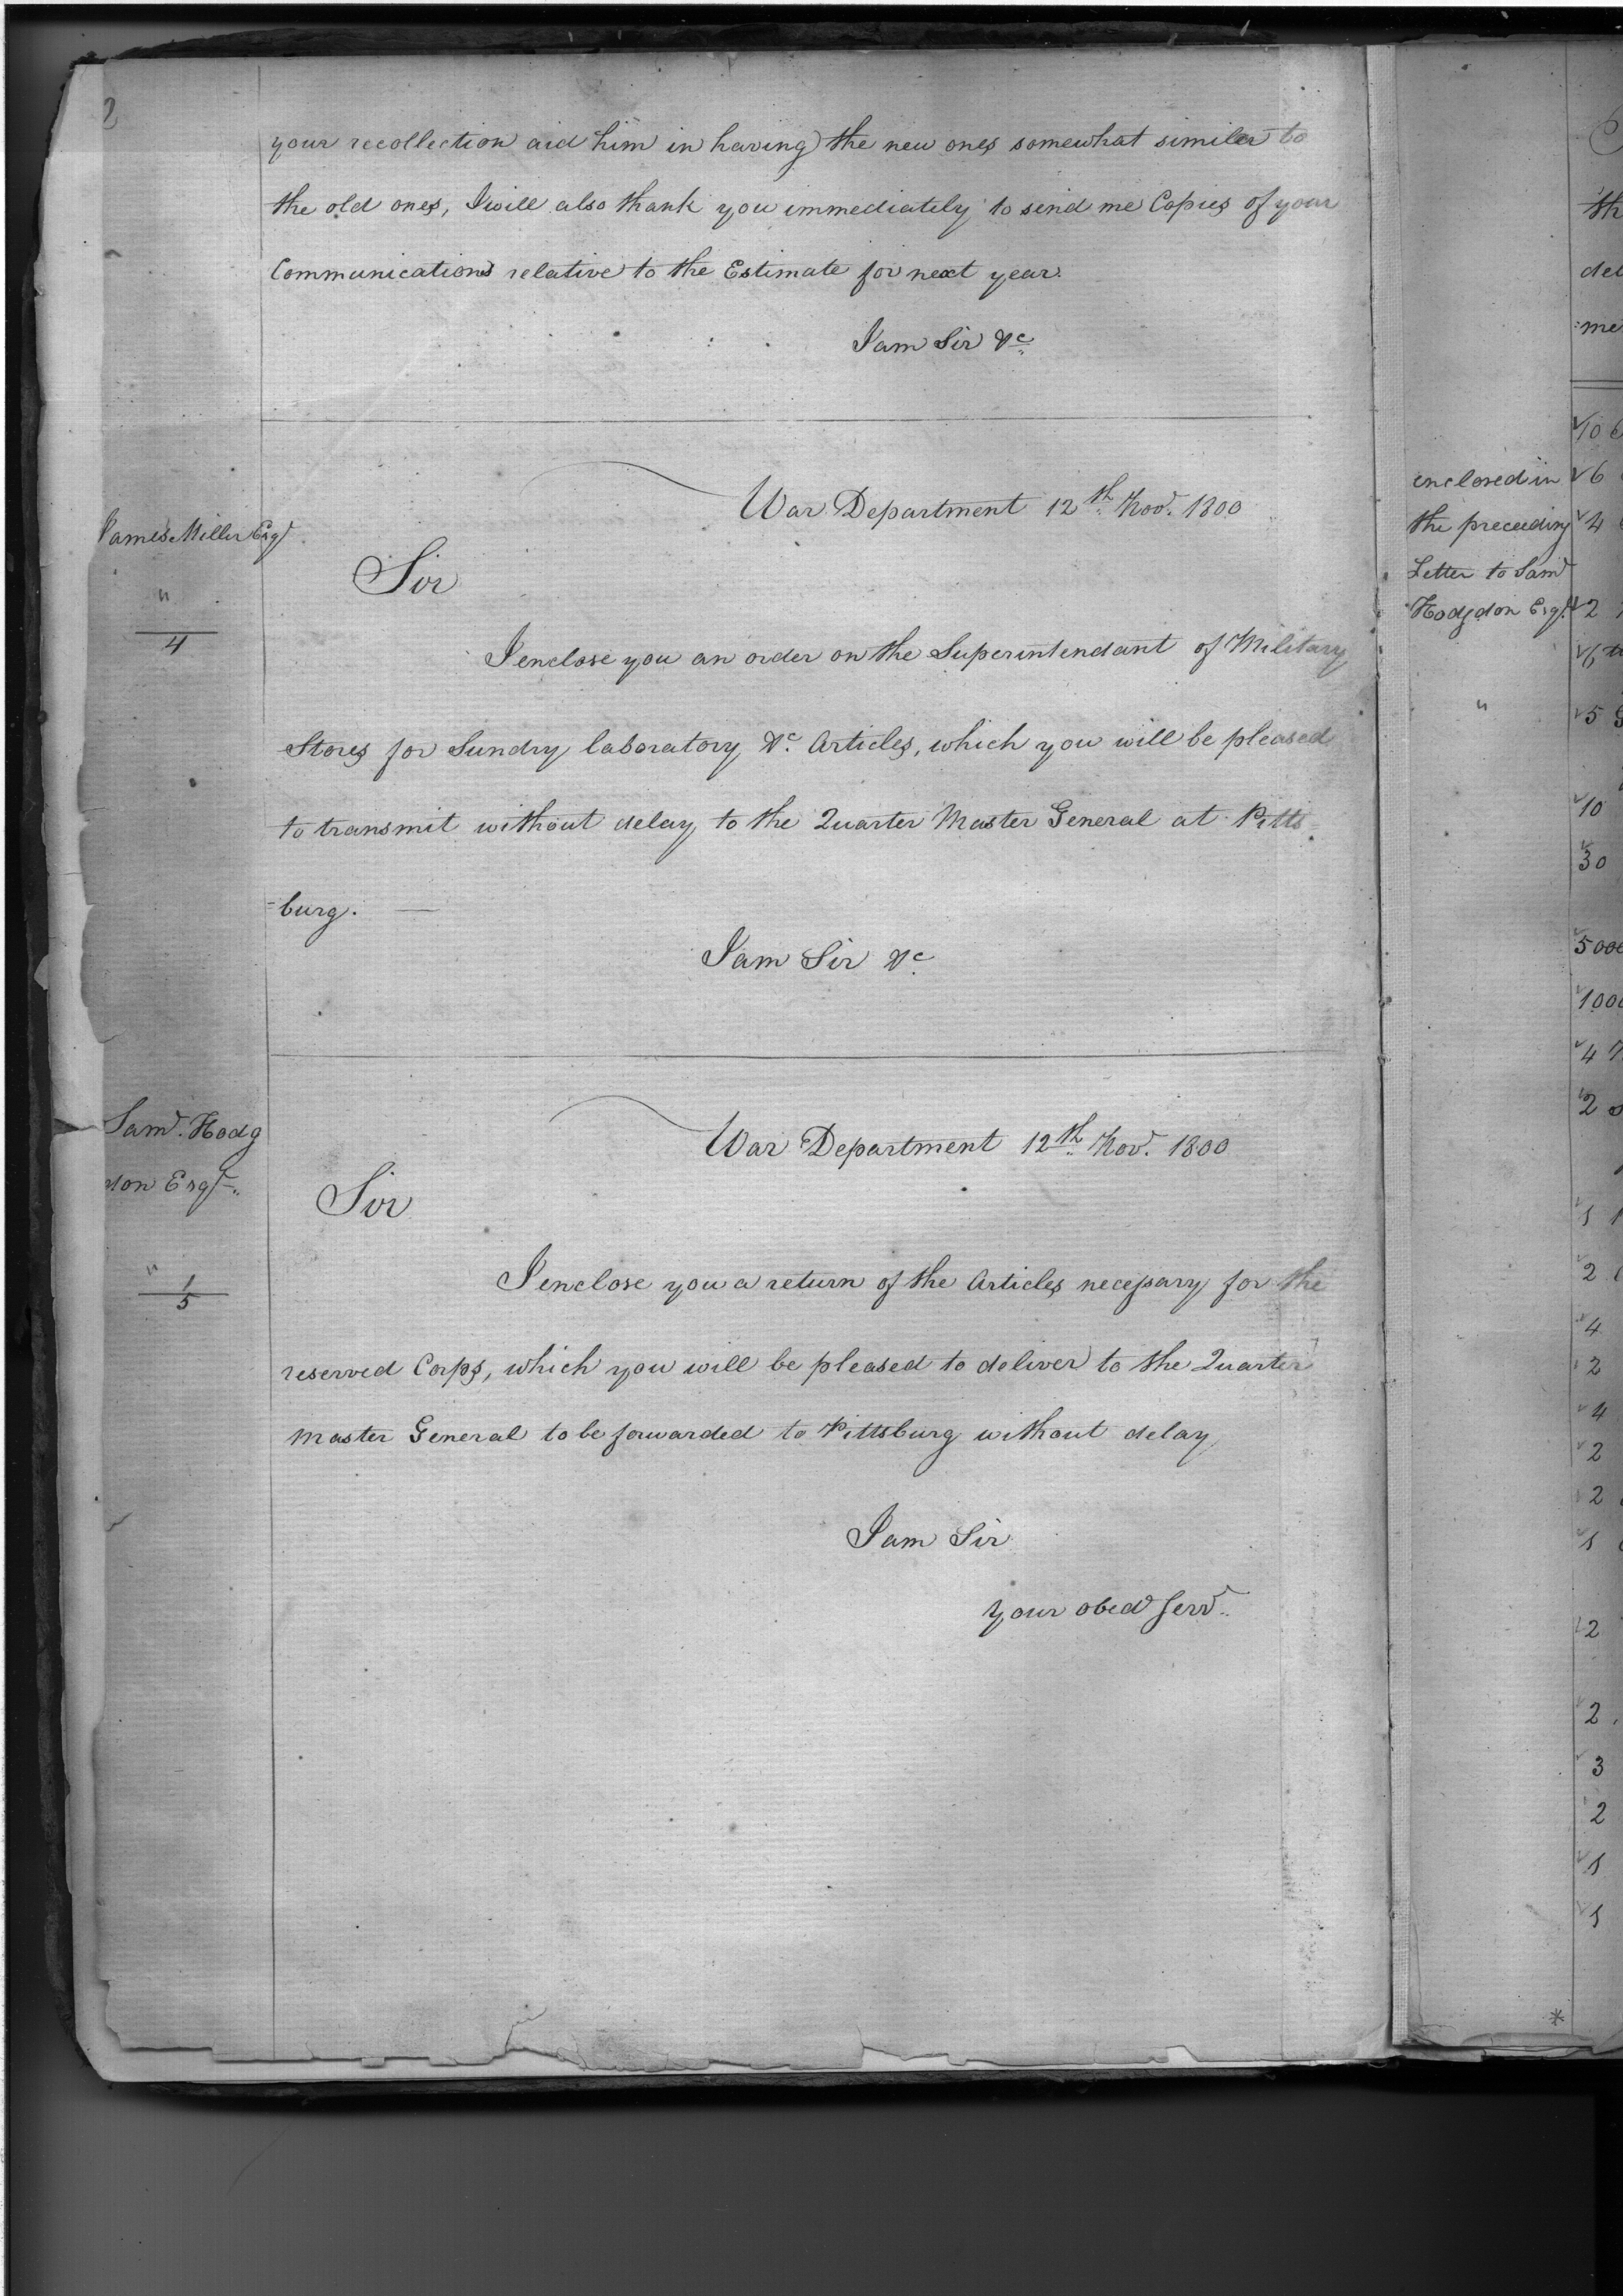 2
your recollection aid him in having the new ones somewhat similar to
the old ones, I will also thank you immediately to send me Copies of your
Communications relative to the Estimate for next year.
I am Sir &c
War Department 12th Nov. 1800
James Miller Esqr
"
4
Sir
I enclose you an order on the Superintendant of Military
Stores for Sundry laboratory &c. Articles, which you will be pleased
to transmit without delay to the Quarter Master General at Pitts
=burg. —
I am Sir &c
War Department 12th Nov. 1800
Saml. Hodg
don Esqr.
"
1
5
Sir
I enclose you a return of the Articles necessary for the
reserved Corps, which you will be pleased to deliver to the Quarter
Master General to be forwarded to Pittsburg without delay
I am Sir
your obed Servt.
enclosed in
the preceeding
Letter to Saml
Hodgdon Esqr.
"
th
:me
10
6
4
2
5
10
30
4
2
2
4
2
4
2
2
2
2
3
2
*